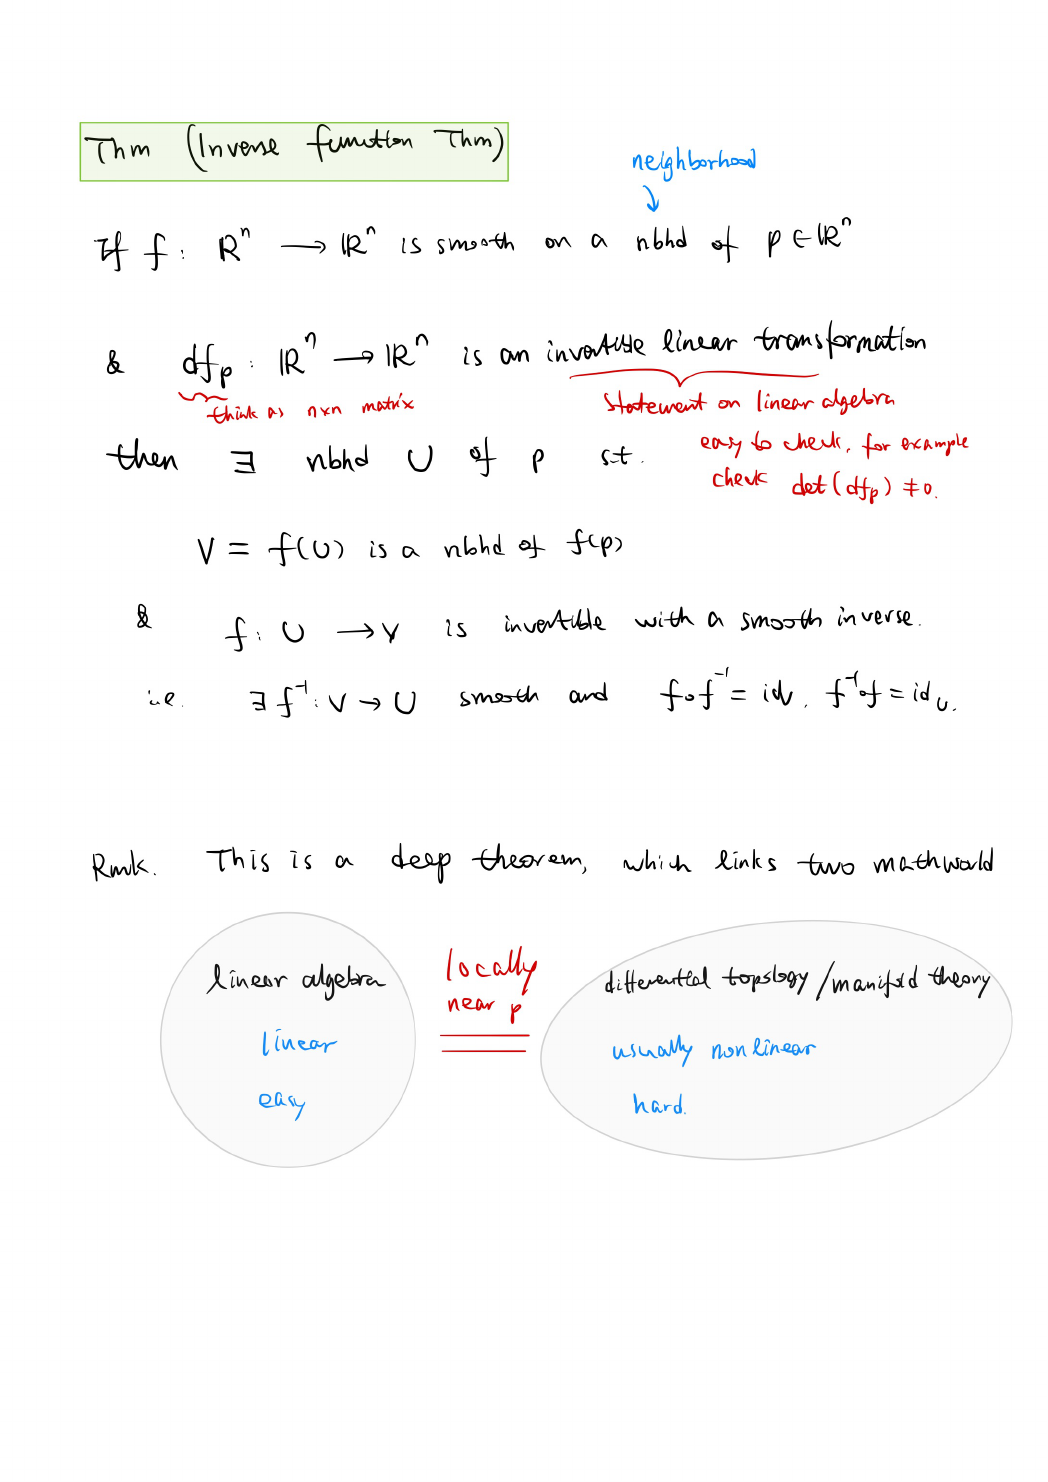 Thm (Inverse function Thm)
neighborhood
↓
If f: ℝⁿ ⟶ ℝⁿ is smooth on a nbhd of p ∈ ℝⁿ
& df_p : ℝⁿ ⟶ ℝⁿ is an invertible linear transformation
think as n×n matrix
statement on linear algebra
easy to check, for example
check det(df_p) ≠ 0.
then ∃ nbhd U of p s.t.
V = f(U) is a nbhd of f(p)
& f: U ⟶ V is invertible with a smooth inverse.
i.e. ∃ f⁻¹: V → U smooth and f∘f⁻¹ = id_V, f⁻¹∘f = id_U.
Rmk. This is a deep theorem, which links two math world
linear algebra
linear
easy
locally
near p
differential topology / manifold theory
usually nonlinear
hard.